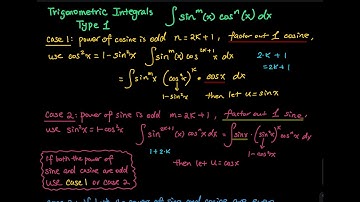 Trigonometric Integrals ∫ sin^m(x) cos^n(x) dx
Type 1
Case 1: power of cosine is odd n = 2K+1, factor out 1 cosine,
use cos²x = 1-sin²x ∫ sin^m(x) cos^(2K+1) x dx 2·K+1
= ∫ sin^m x (cos²x)^K · cosx dx = 2K+1
1-sin²x then let u = sinx
Case 2: power of sine is odd m = 2K+1, factor out 1 sine,
use sin²x = 1-cos²x ∫ sin^(2K+1) x cos^n x dx = ∫ sinx · (sin²x)^K cos^n x dx
1+2·K 1-cos²x
then let u = cosx
If both the power of
sine and cosine are odd
USE CASE 1 or CASE 2